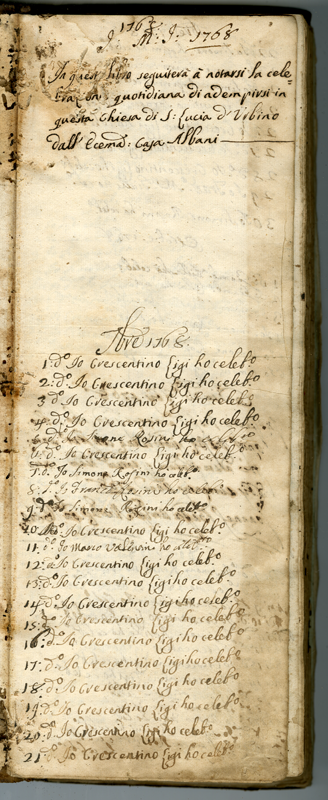 1768
J: M: J: 1768
In quest libro seguiterà à notarsi la cele=
quotidiana di adempirsi in
questa Chiesa di S: Lucia d'Urbino
dall' Ecema: Casa Albani
1768
1: dº Io Crescentino Ligi ho celebº
2: dº Io Crescentino Ligi ho celebº
3 dº Io Crescentino Ligi ho celebº
4: dº Io Crescentino Ligi ho celebº
Io Simone Rosini ho
dº Io Crescentino Ligi ho celebº
7: dº Io Simone Rosini ho celebº
8: ho celebº
9: Io Simone Rosini ho celebº
10 Io Crescentino Ligi ho celebº
11: Io Marco ho
12: Io Crescentino Ligi ho celebº
13: dº Io Crescentino Ligi ho celebº
14 dº Io Crescentino Ligi ho celebº
15: dº Io Crescentino Ligi ho celebº
16: dº Io Crescentino Ligi ho celebº
17: dº Io Crescentino Ligi ho celebº
18: dº Io Crescentino Ligi ho celebº
19: dº Io Crescentino Ligi ho celebº
20: dº Io Crescentino Ligi ho celebº
21: dº Io Crescentino Ligi ho celebº